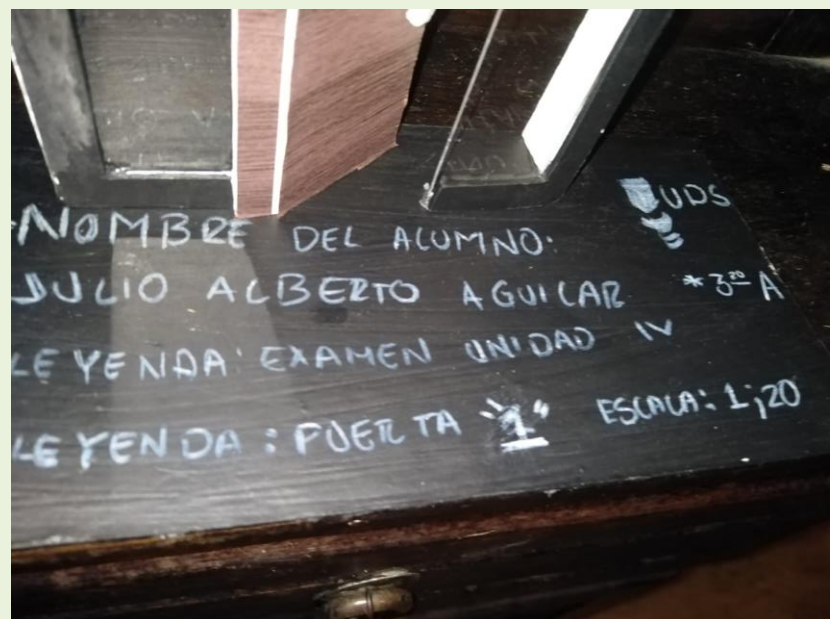 UDS
NOMBRE DEL ALUMNO:
JULIO ALBERTO AGUILAR *3ro A
LEYENDA: EXAMEN UNIDAD IV
LEYENDA: PUERTA "1" ESCALA: 1;20